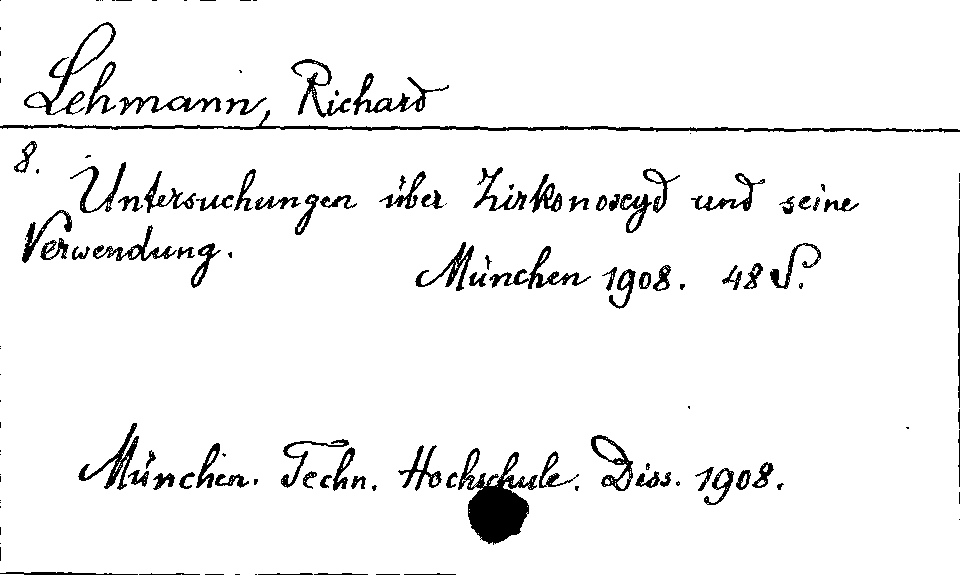 Lehmann, Richard
8.
Untersuchungen über Zirkonoxyd und seine
Verwendung.
München 1908. 48 S.
München. Techn. Hochschule. Diss. 1908.